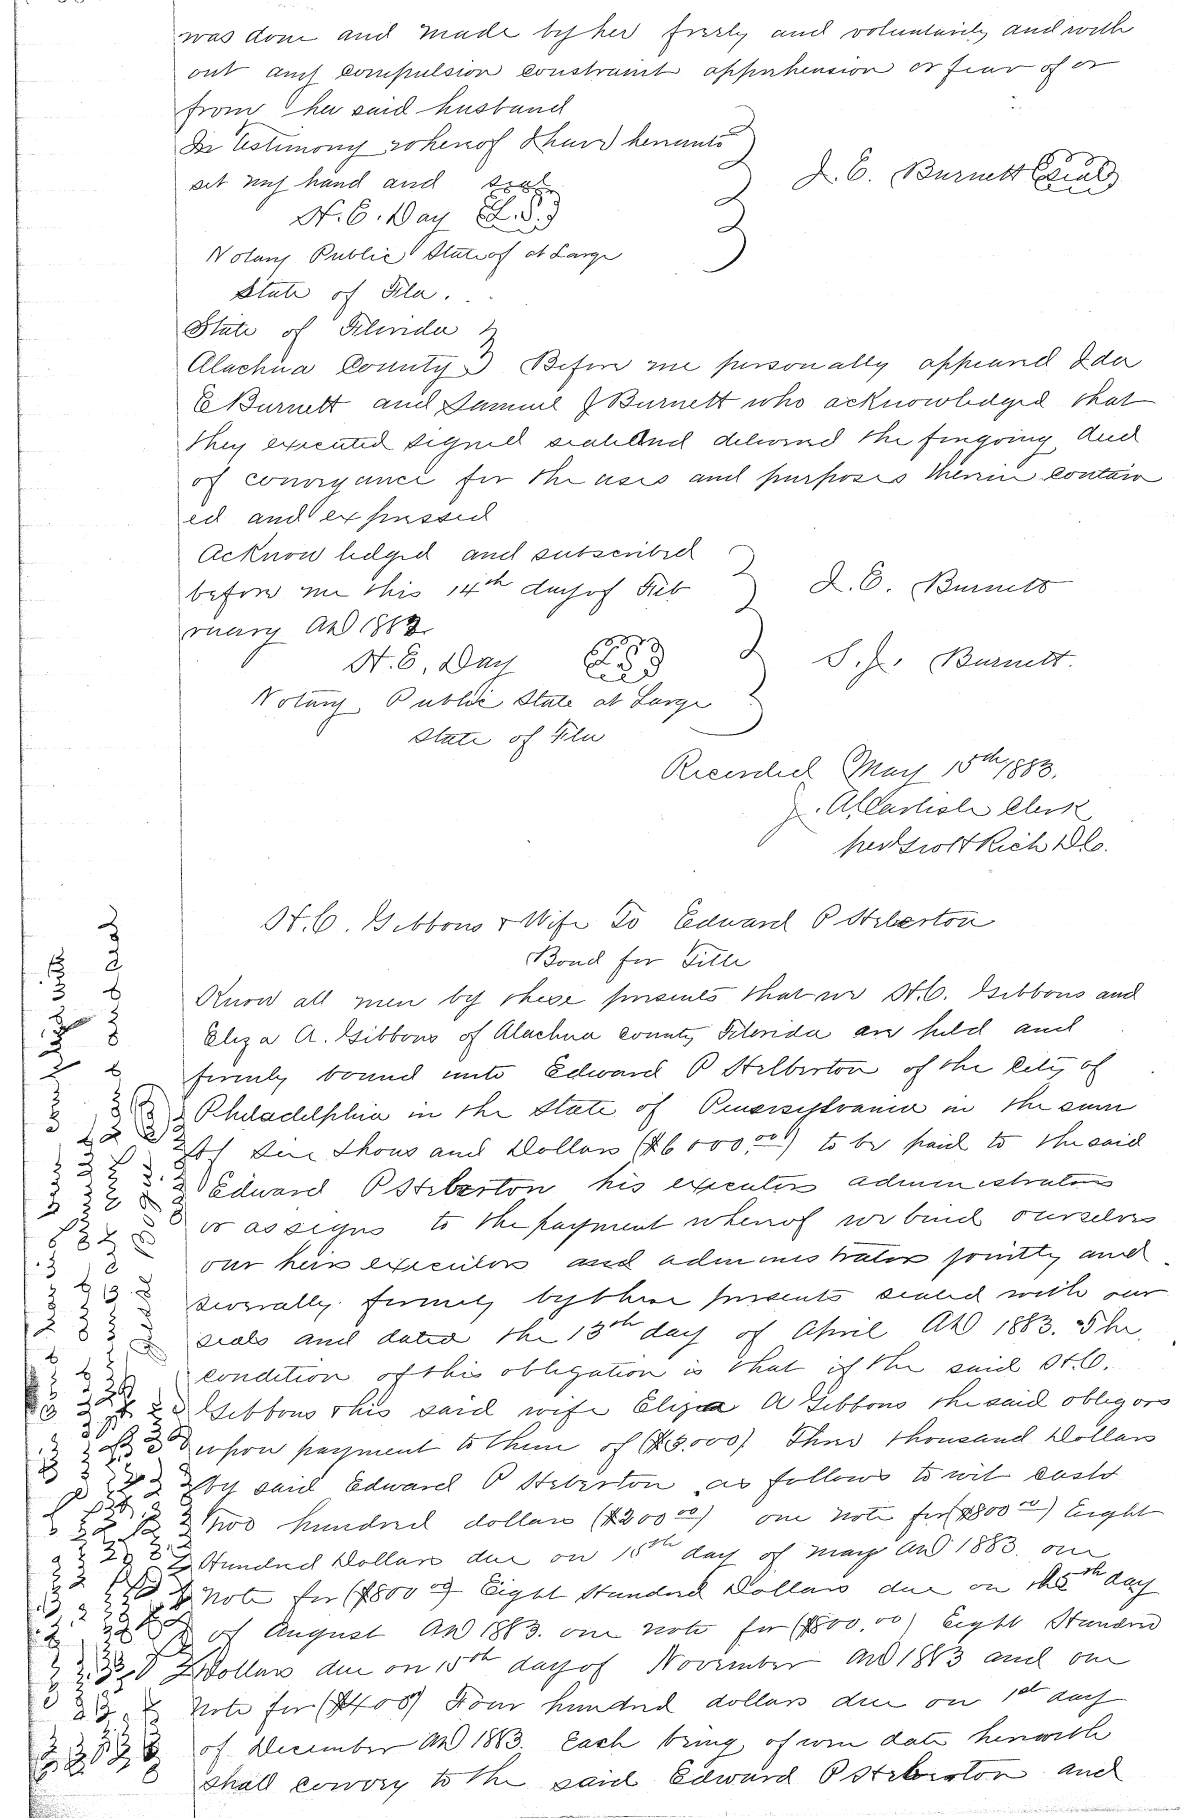 was done and made by her freely and voluntarily and with
out any compulsion constraint apprehension or fear of or
from her said husband
In Testimony whereof I have hereunto
set my hand and seal
I. E. Burnett (Seal)
H. E. Day (L.S.)
Notary Public State of at Large
State of Fla.
State of Florida
Alachua County } Before me personally appeared Ida
E Burnett and Samuel J Burnett who acknowledged that
they executed signed sealed and delivered the foregoing deed
of conveyance for the uses and purposes therein contain
ed and expressed
Acknowledged and subscribed
before me this 14th day of Feb
I. E. Burnett
ruary AD 1883.
H. E. Day (L.S.)
S. J. Burnett.
Notary Public State at Large
State of Fla
Recorded May 15th 1883.
J. A. Carlisle Clerk
per Scott Rich D.C.
H. C. Gibbons & Wife To Edward P Heberton
Bond for Title
Know all men by these presents that we H. C. Gibbons and
Eliza A. Gibbons of Alachua county Florida are held and
firmly bound unto Edward P Helberton of the City of
Philadelphia in the State of Pennsylvania in the sum
Of Six Thousand Dollars ($6000.00) to be paid to the said
Edward P Heberton his executors administrators
or assigns to the payment whereof we bind ourselves
our heirs executors and administrators jointly and
severally firmly by these presents sealed with our
seals and dated the 13th day of April AD 1883. The
condition of this obligation is that if the said H. C.
Gibbons & his said wife Eliza A Gibbons the said obligors
upon payment to them of ($3.000) Three thousand Dollars
by said Edward P Heberton as follows to wit cash
Two hundred dollars ($200 00) one note for ($800 00) Eight
Hundred Dollars due on 15th day of May AD 1883. one
Note for ($800 00) Eight Hundred Dollars due on the 5th day
of August AD 1883. one note for ($800.00) Eight Hundred
Dollars due on 15th day of November AD 1883 and one
Note for ($400) Four hundred dollars due on 1st day
of December AD 1883. Each being of even date herewith
shall convey to the said Edward P Heberton and